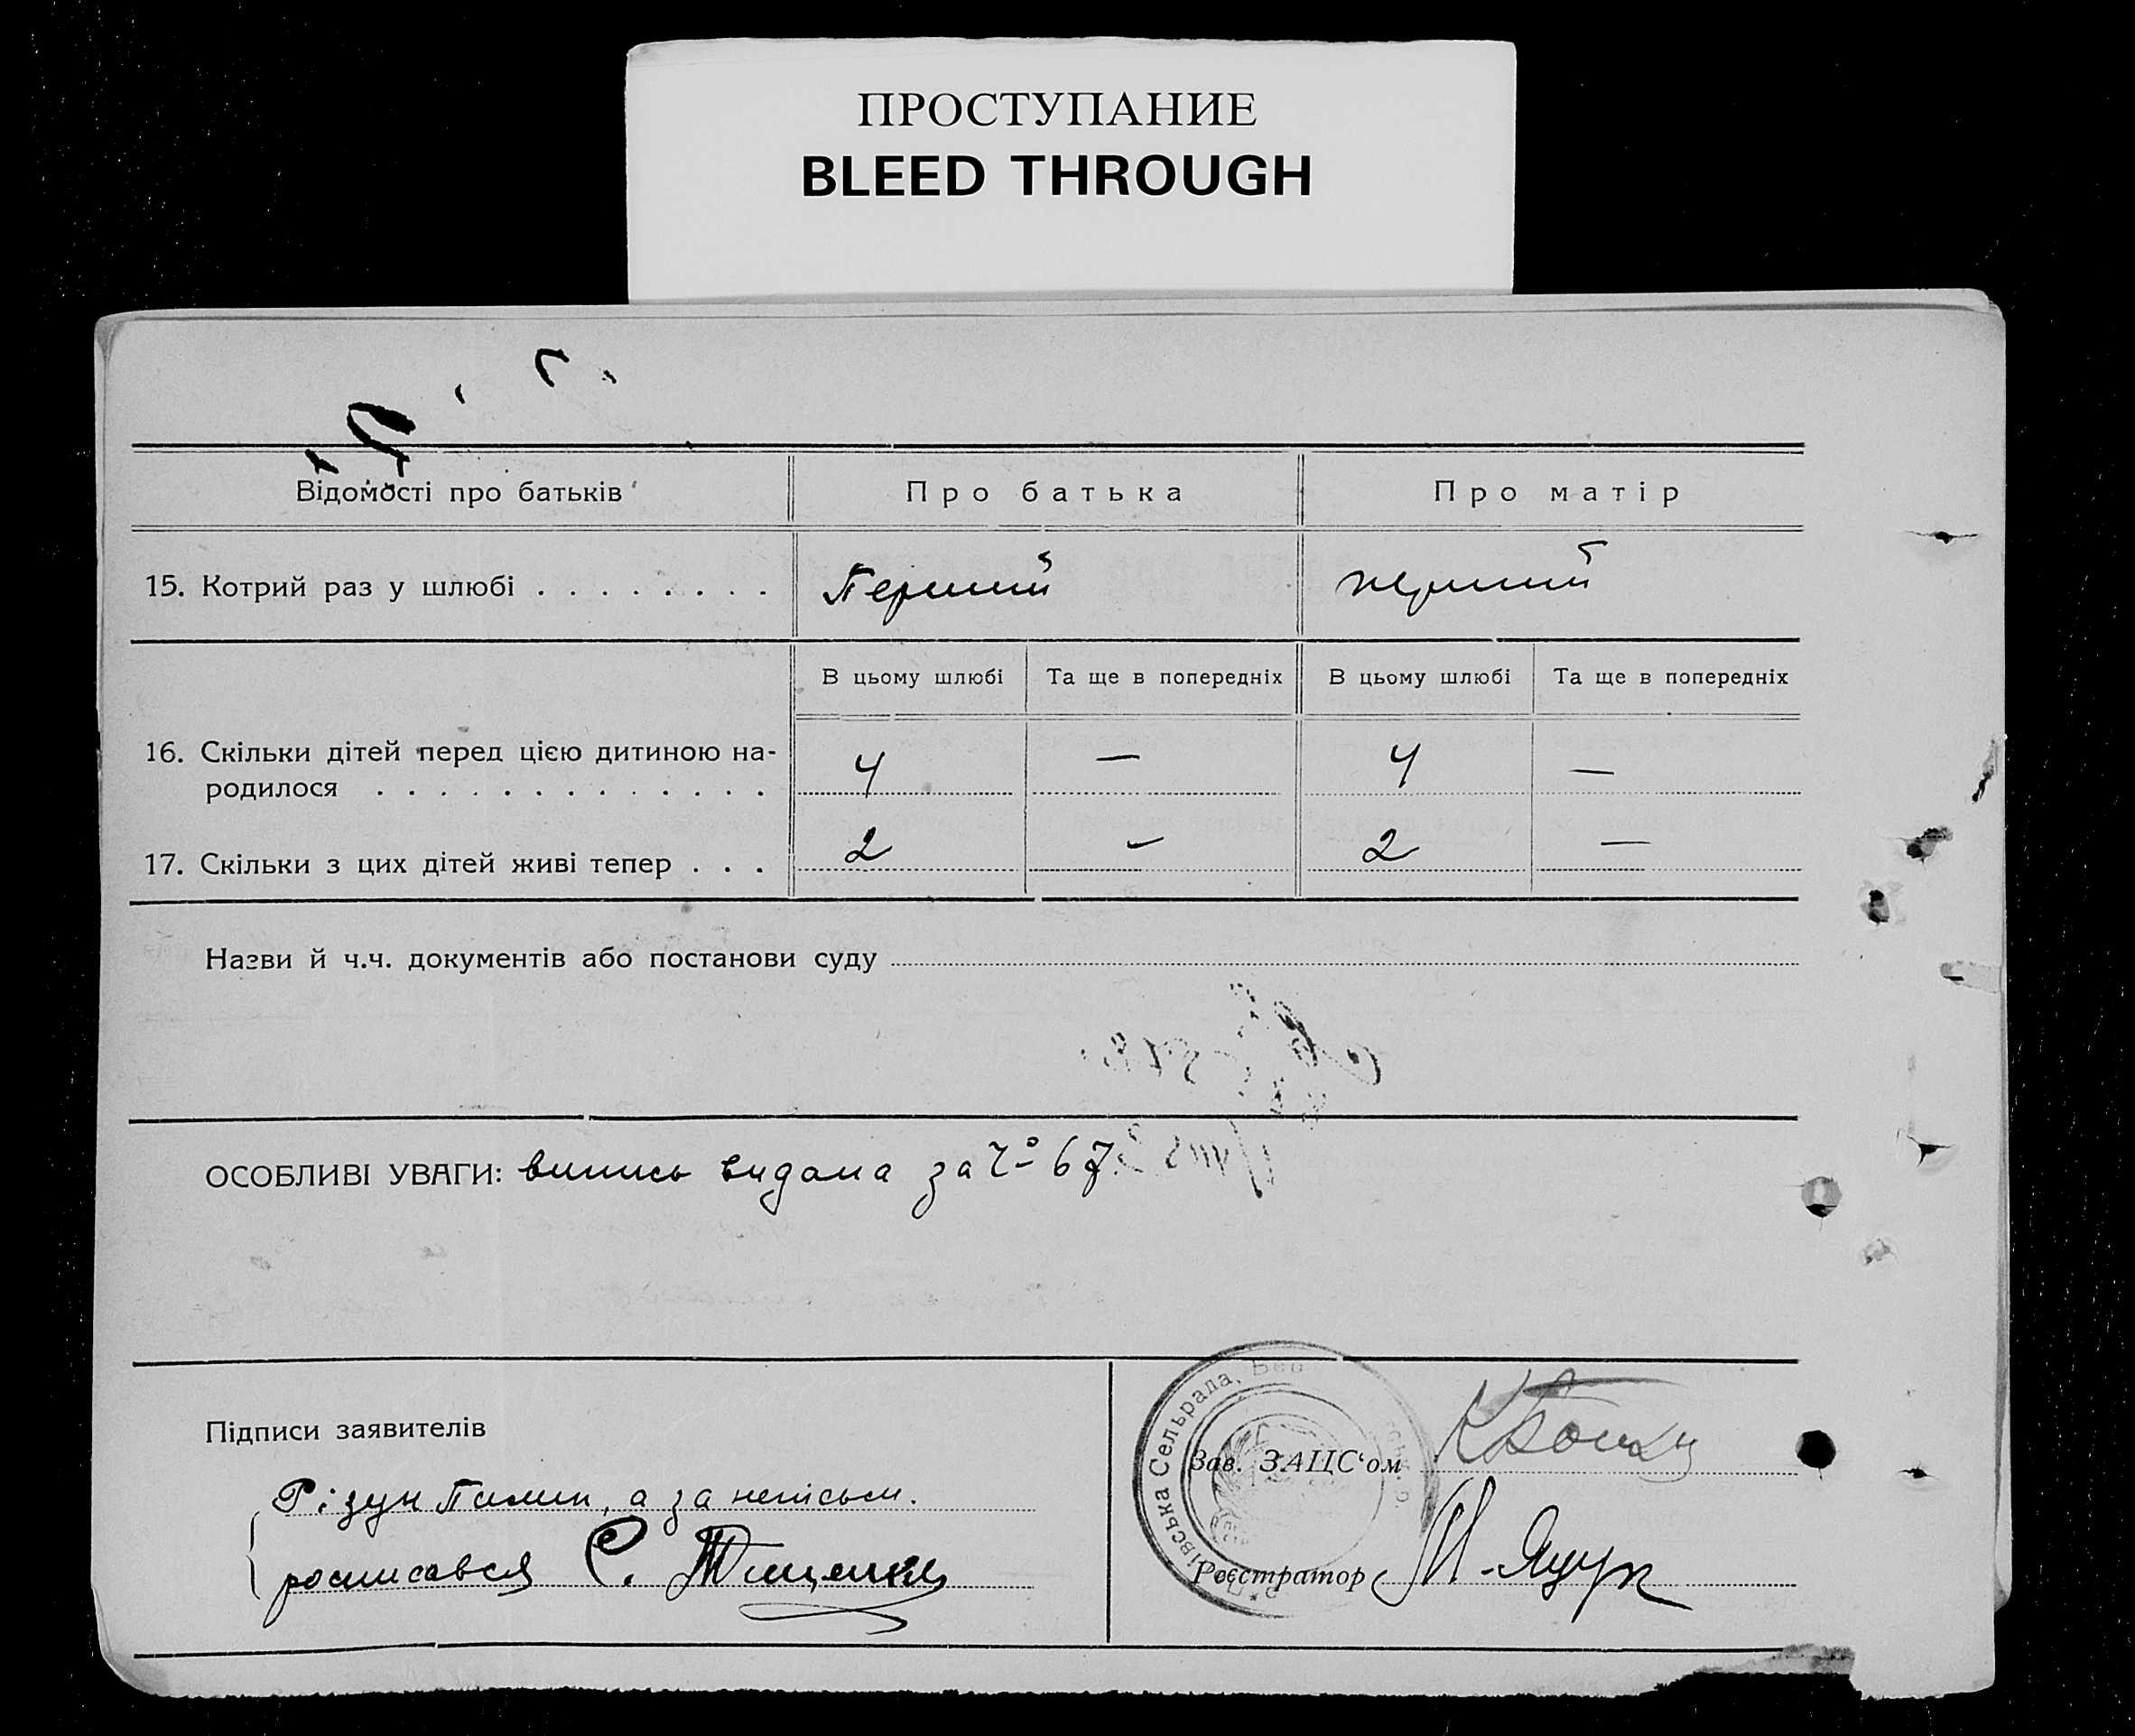 ПРОСТУПАНИЕ
BLEED THROUGH
Відомості про батьків
Про батька
Про матір
15. Котрий раз у шлюбі . . . . . . . .
Перший
перший
В цьому шлюбі
Та ще в попередніх
В цьому шлюбі
Та ще в попередніх
16. Скільки дітей перед цією дитиною на-
родилося . . . . . . . . . . . . .
4
—
4
—
17. Скільки з цих дітей живі тепер . . .
2
-
2
—
Назви й ч.ч. документів або постанови суду
ОСОБЛИВІ УВАГИ: випись видана за Ч° 67
Підписи заявителів
Різун , а за неписьм.
росписався С. Тищенко
Сельрада,
Зав. ЗАЦС'ом
Реєстратор М. Яцук